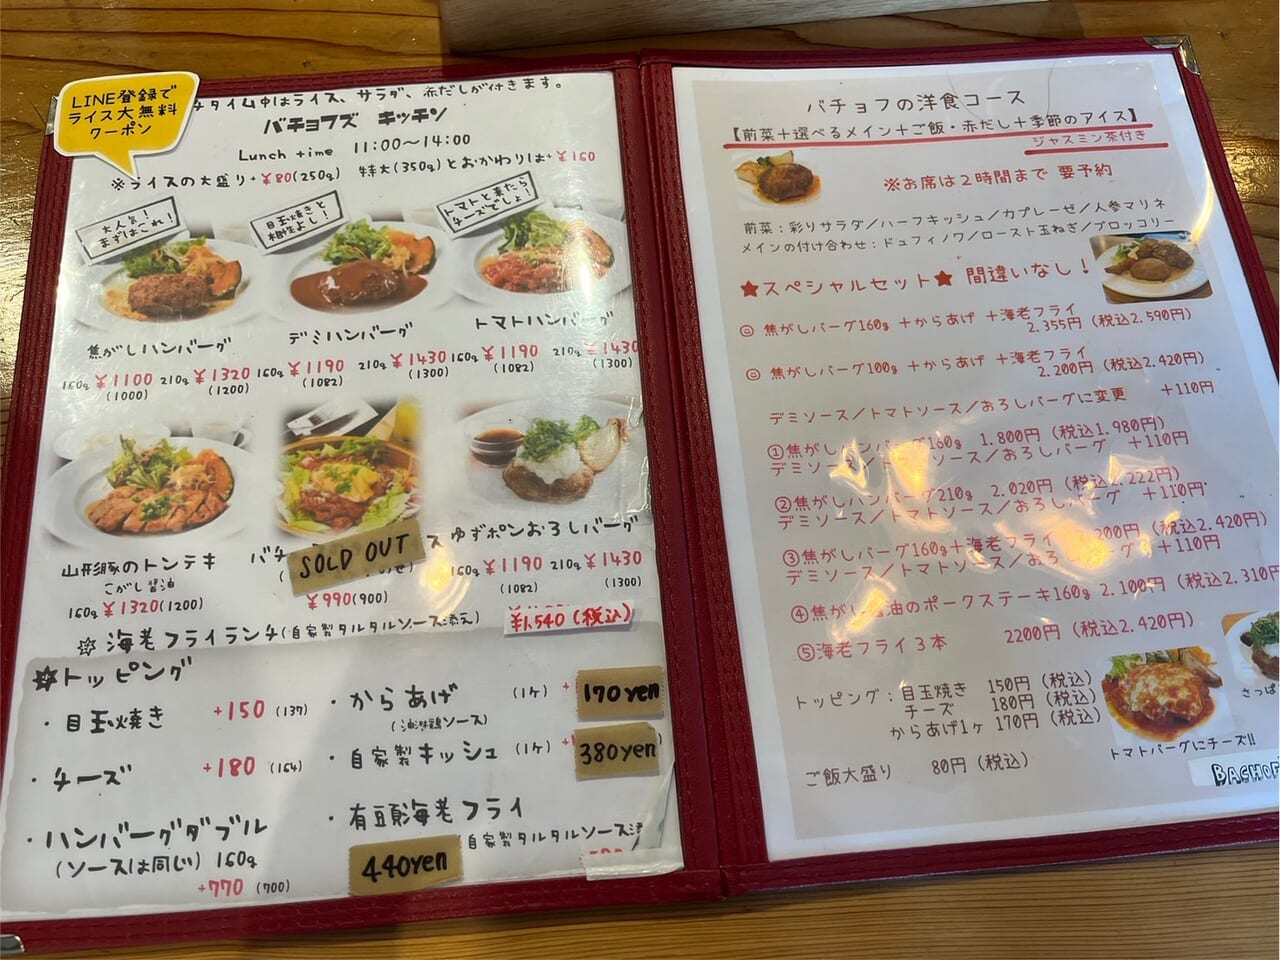 LINE登録で
ライス大無料
クーポン
チタイム中はライス、サラダ、赤だしが付きます。
バチョフズ キッチン
Lunch time 11:00〜14:00
※ライスの大盛り+¥80(250g) 特大(350g)とおかわりは+¥160
大人気!
まずはこれ!
目玉焼きと
相性よし!
トマトと来たら
チーズでしょ!
焦がしハンバーグ
160g ¥1100 210g ¥1320
(1000) (1200)
デミハンバーグ
160g ¥1190 210g ¥1430
(1082) (1300)
トマトハンバーグ
160g ¥1190 210g ¥1430
(1082) (1300)
山形豚のトンテキ
こがし醤油
160g ¥1320(1200)
バチ
SOLD OUT
ス
¥990(900)
ゆずポンおろしバーグ
160g ¥1190 210g ¥1430
(1082) (1300)
☆海老フライランチ(自家製タルタルソース添え) ¥1.540(税込)
☆トッピング
・目玉焼き +150(137)
・チーズ +180(164)
・ハンバーグダブル
(ソースは同じ) 160g
+770(700)
・からあげ (1ヶ) + 170yen
(油淋鶏ソース)
・自家製キッシュ (1ヶ) + 380yen
・有頭海老フライ
(自家製タルタルソース添
440yen
バチョフの洋食コース
【前菜+選べるメイン+ご飯・赤だし+季節のアイス】
ジャスミン茶付き
※お席は2時間まで 要予約
前菜:彩りサラダ/ハーフキッシュ/カプレーゼ/人参マリネ
メインの付け合わせ:ドュフィノワ/ロースト玉ねぎ/ブロッコリー
★スペシャルセット★ 間違いなし!
焦がしバーグ160g +からあげ +海老フライ
2.355円(税込2.590円)
焦がしバーグ100g +からあげ +海老フライ
2.200円(税込2.420円)
デミソース/トマトソース/おろしバーグに変更 +110円
①焦がしハンバーグ160g 1.800円(税込1.980円)
デミソース/トマトソース/おろしバーグ +110円
②焦がしハンバーグ210g 2.020円(税込2.222円)
デミソース/トマトソース/おろしバーグ +110円
③焦がしバーグ160g+海老フライ 200円(税込2.420円)
デミソース/トマトソース/おろ グ +110円
④焦がし 油のポークステーキ160g 2.100円(税込2.310円
⑤海老フライ3本 2200円(税込2.420円)
トッピング:目玉焼き 150円(税込)
チーズ 180円(税込)
からあげ1ヶ 170円(税込)
ご飯大盛り 80円(税込)
トマトバーグにチーズ!!
さっぱ
BACHOF